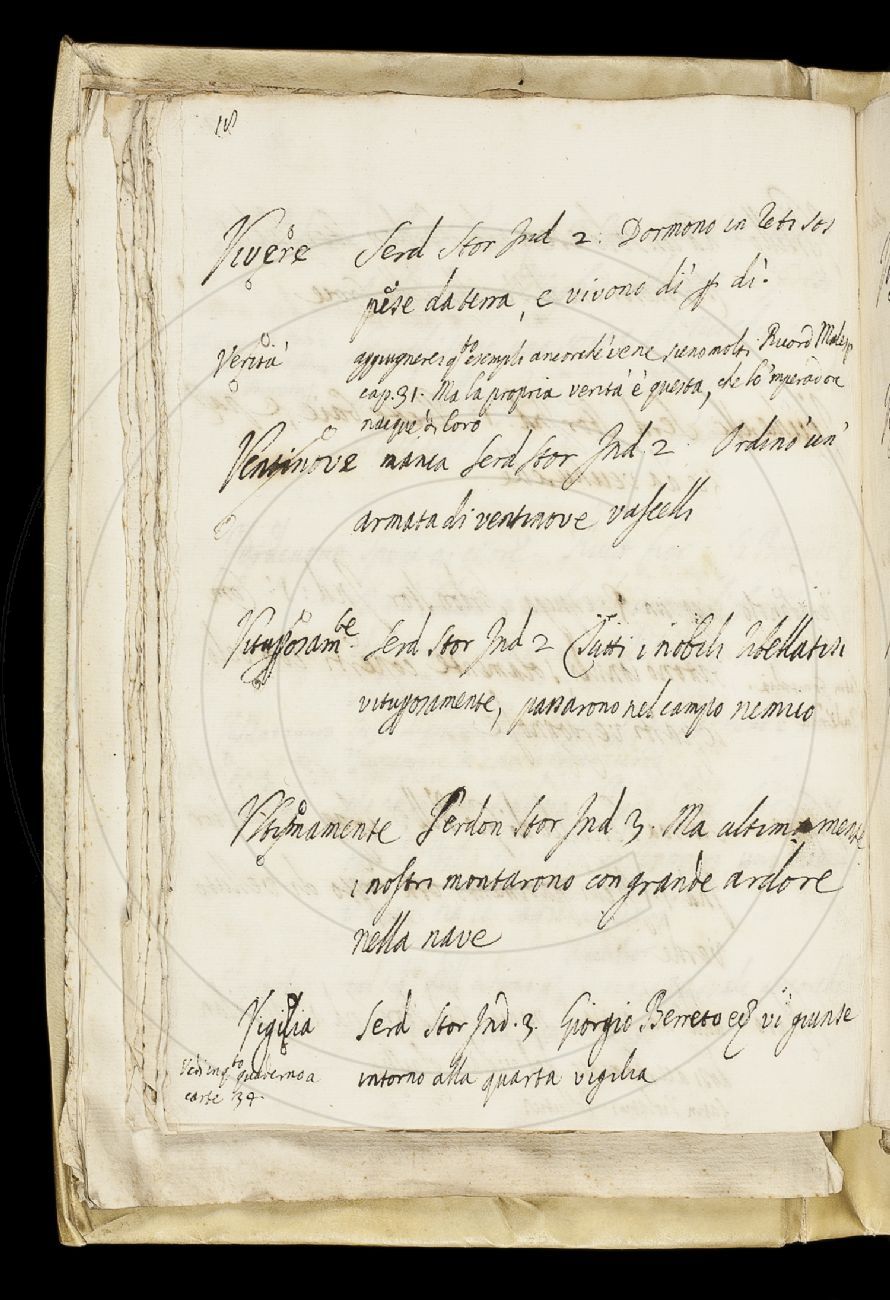 118
Vivere Serd Stor Ind 2. Dormono in letti sos
pese da terra, e vivono dì p dì.
Verità aggiugnerei qto esempli ancorchè vene sieno molti. Ricord Malesp
cap. 31. Ma la propria verità è questa, che lo 'mperadore
nacque di loro
Ventinove manca Serd Stor Ind. 2 Ordinò un'
armata di ventinove vascelli
Vituposamte. Serd Stor Ind 2 Tutti i nobili
vituposamente, passarono nel campo nemico
Ultimamente Serdon Stor Ind 3. Ma ultimamente
i nostri montarono con grande ardore
nella nave
Vigilia Serd Stor Ind. 3. Giorgio Berreto vi giunse
intorno alla quarta vigilia
Vedi in qto quaderno a
carte 34.